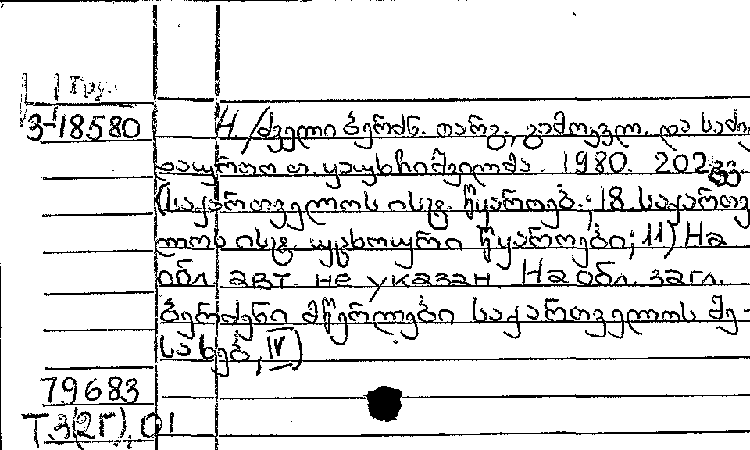 Груз.
3-18580
Ч / ძველი ბერძნ. თარგ., გამოკვლ. და საძი-
დაურთო თ. ყაუხჩიშვილმა. 1980. 202 გვ
(საქართველოს ისტ. წყაროებ.; 18. საქართვე
ლოს ისტ. უცხოური წყაროები; 11) На
обл. авт. не указан. На обл. загл.
ბერძენი მწერლები საქართველოს შე-
სახებ, IV)
79683
Т3(2Г),01